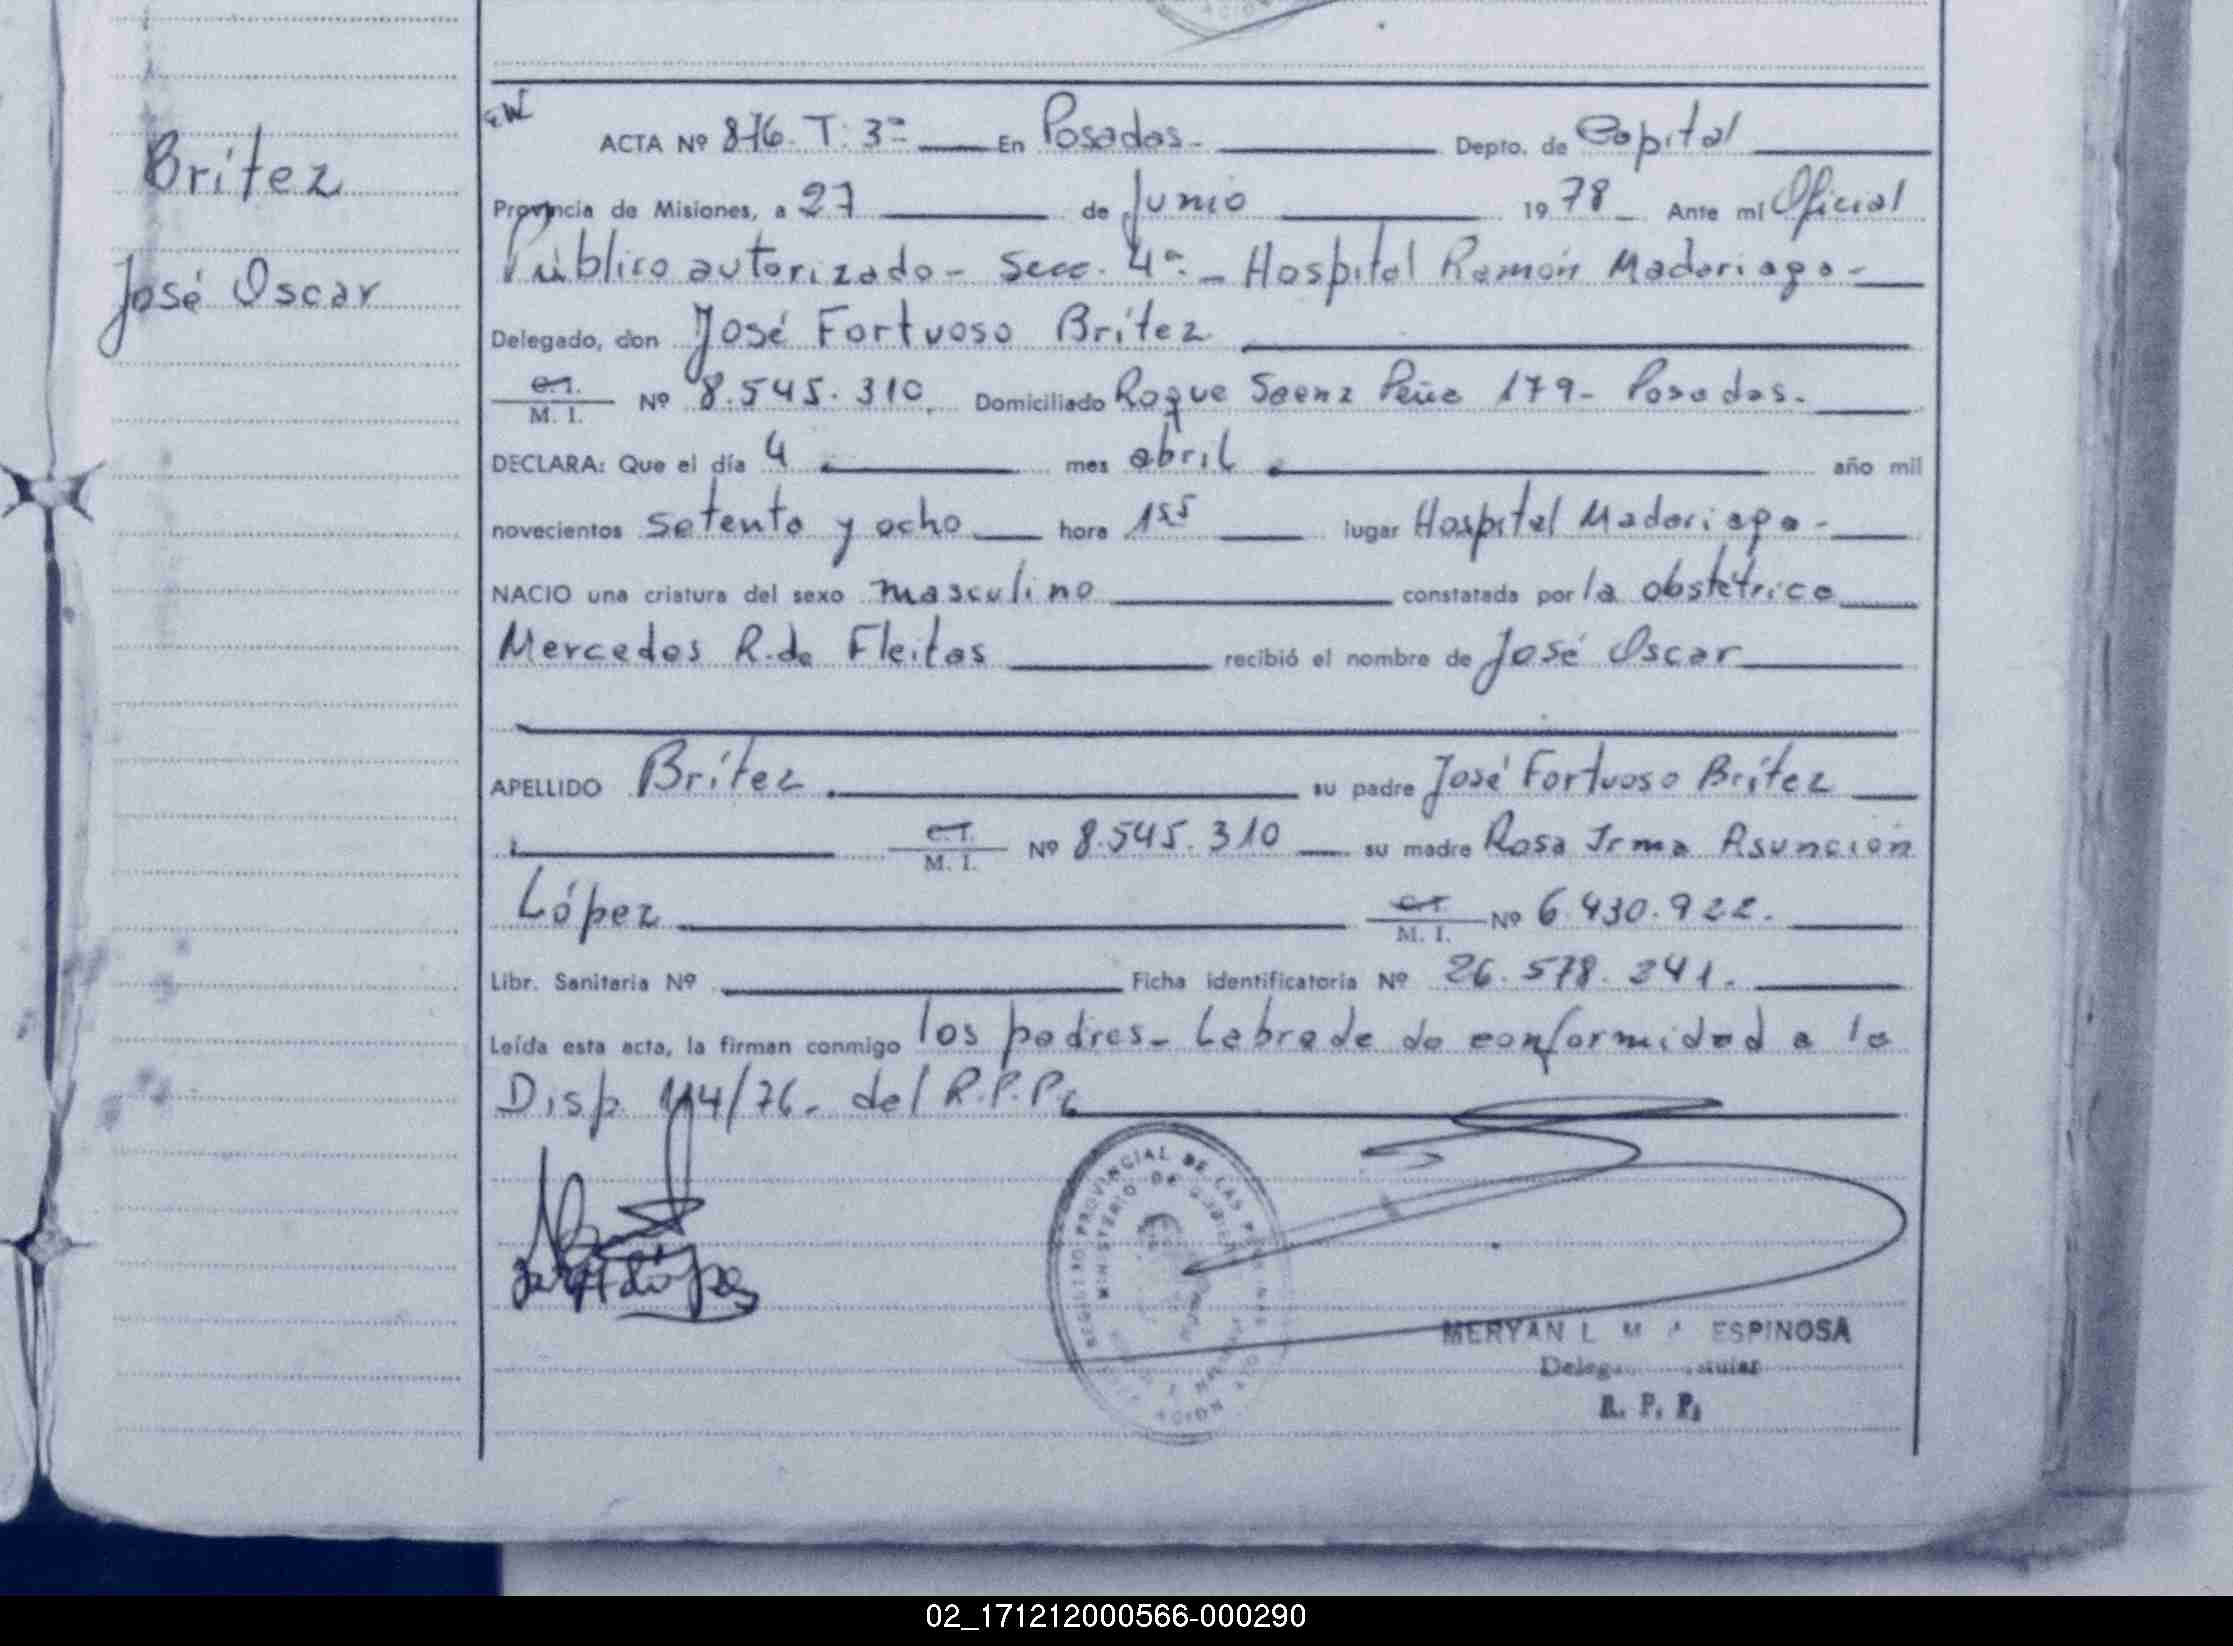 Brítez
José Oscar
ACTA Nº 876. T. 3º En Posadas. Depto. de Capital
Provincia de Misiones, a 27 de Junio 1978 Ante mi Oficial
Público autorizado - Secc. 4ª. - Hospital Ramón Madariaga -
Delegado, don José Fortuoso Brítez
C.I. M. I. Nº 8.545.310. Domiciliado Roque Saenz Peña 179 - Posadas.
DECLARA: Que el día 4 mes abril año mil
novecientos setenta y ocho hora 1⁵⁵ lugar Hospital Madariaga -
NACIO una criatura del sexo masculino constatada por la obstétrica
Mercedes R. de Fleitas recibió el nombre de José Oscar
APELLIDO Brítez su padre José Fortuoso Brítez
C.I. M. I. Nº 8.545.310 su madre Rosa Irma Asunción
López C.I. M. I. Nº 6.430.922.
Libr. Sanitaria Nº Ficha identificatoria Nº 26.578.241.
Leída esta acta, la firman conmigo los padres - Labrada de conformidad a la
Disp. 114/76. del R.P.P.
REGISTRO PROVINCIAL DE LAS
MINISTERIO DE
MERYAN L ESPINOSA
R. P. P.
02_171212000566-000290